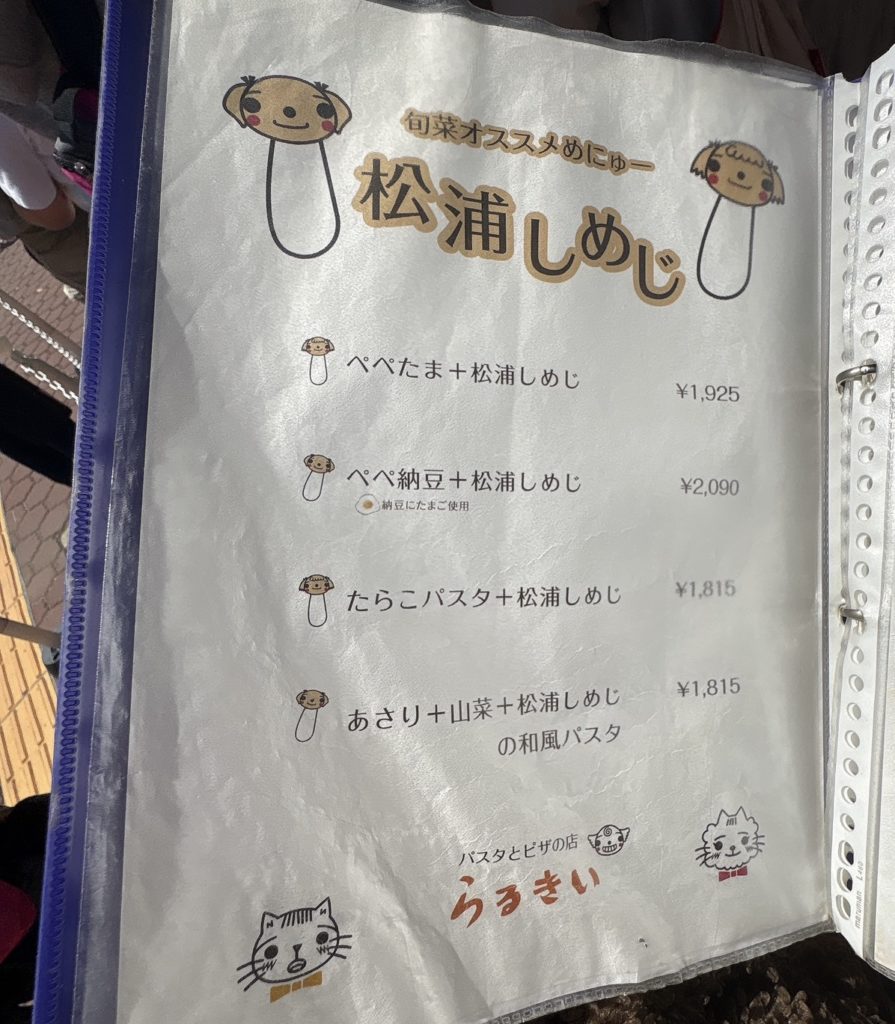 旬菜オススメめにゅー
松浦しめじ
ぺぺたま＋松浦しめじ
¥1,925
ぺぺ納豆＋松浦しめじ
¥2,090
納豆にたまご使用
たらこパスタ＋松浦しめじ
¥1,815
あさり＋山菜＋松浦しめじ
¥1,815
の和風パスタ
パスタとピザの店
らるきい
maruman L